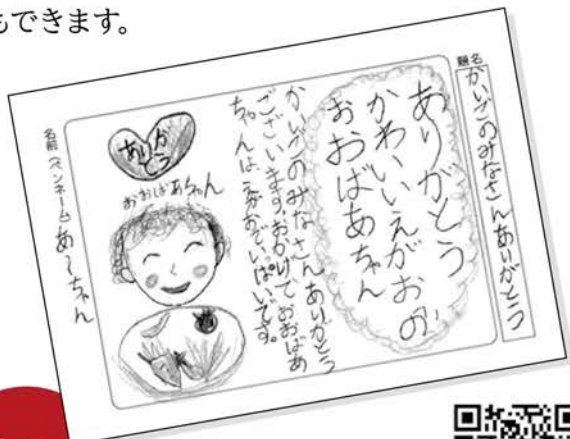 もできます。
題名
かいごのみなさんありがとう
ありがとう
かわいいえがおの
おおばあちゃん
かいごのみなさんありがとう
ございます。おかげでおおばあ
ちゃんは、えがおでいっぱいです。
ありがとう
おおばあちゃん
名前(ペンネーム) あ〜ちゃん